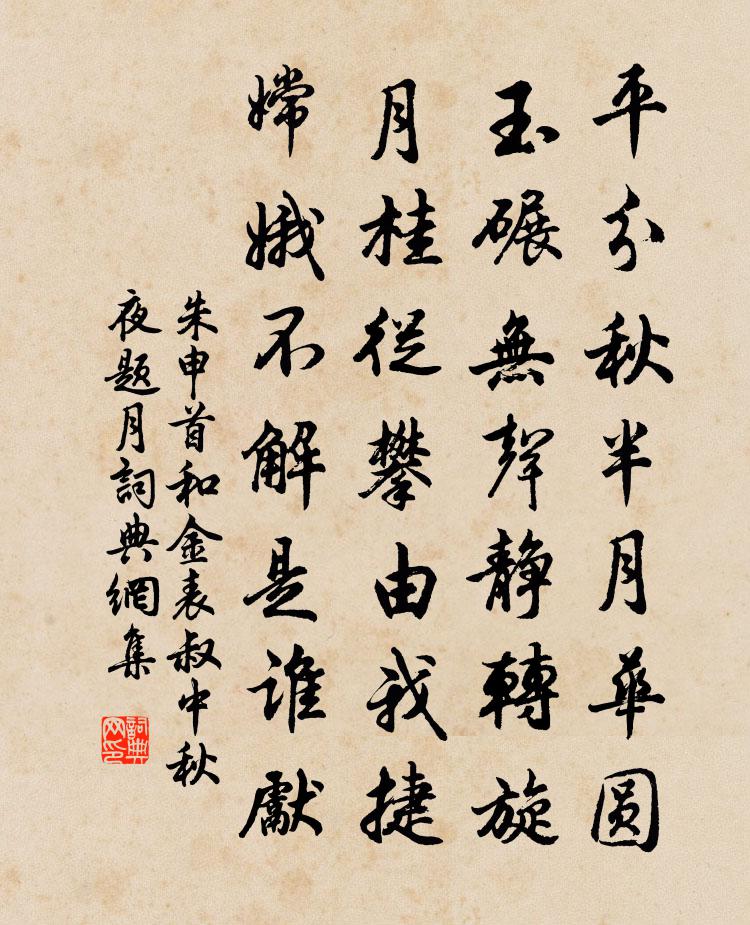 平分秋半月華圆
玉碾無聲静轉旋
月桂從攀由我捷
嫦娥不解是誰獻
朱申首和金表叔中秋
夜题月詞典網集
詞典
网印